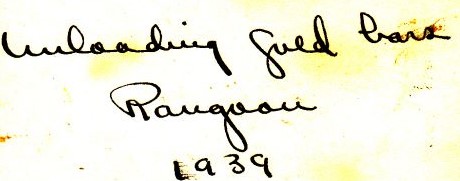 Unloading gold bars
Rangoon
1939